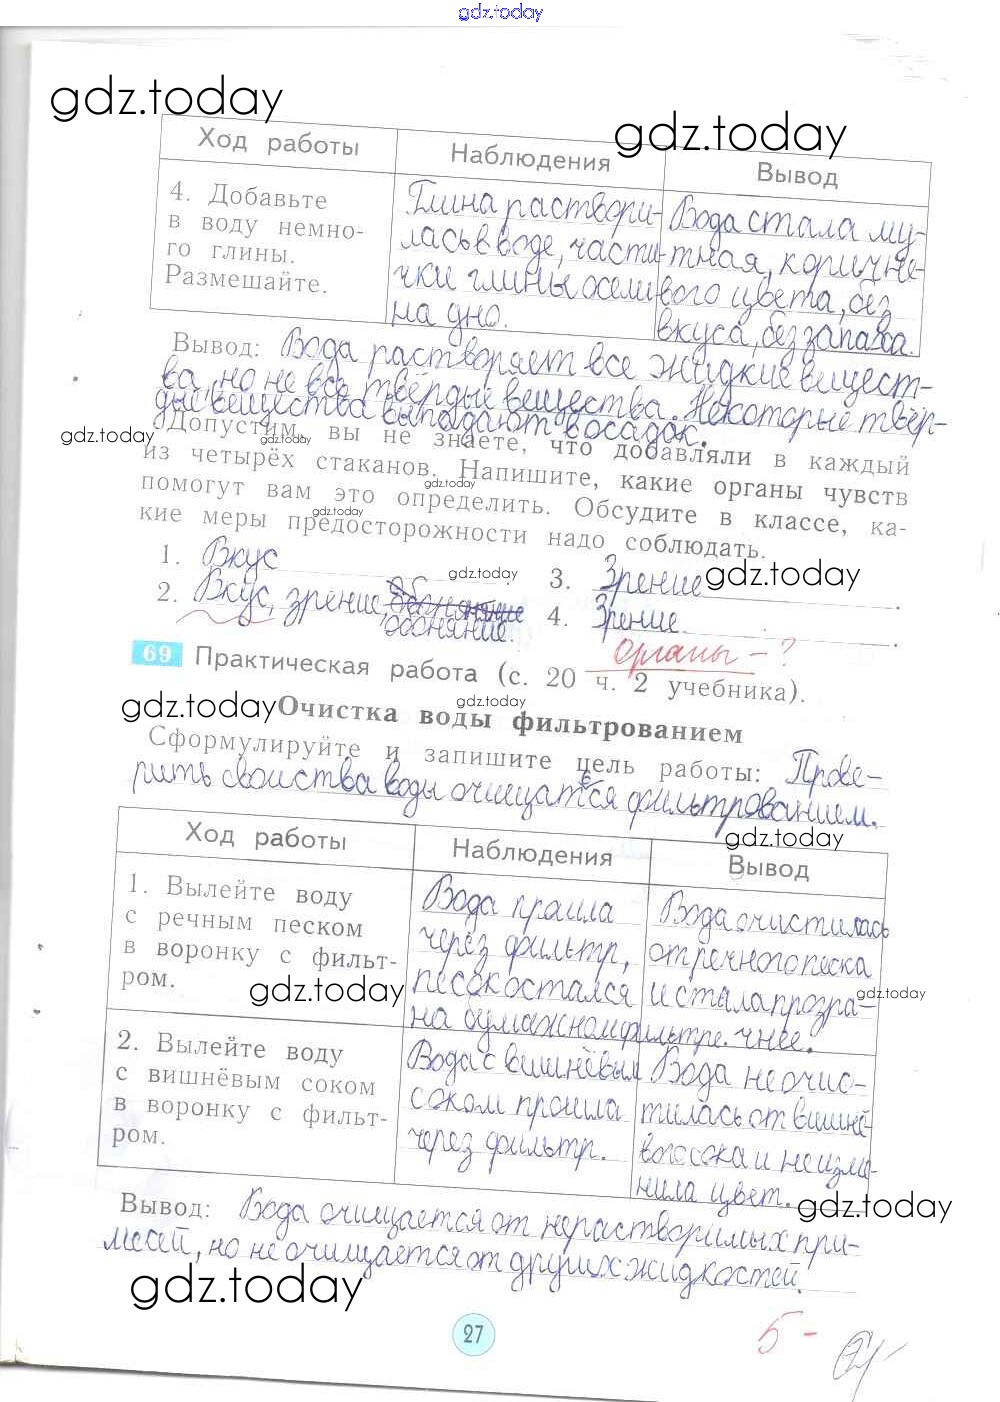 gdz.today
gdz.today
gdz.today
Ход работы
Наблюдения
Вывод
4. Добавьте
в воду немно-
го глины.
Размешайте.
Глина раствори-
лась в воде, части-
чки глины осели
на дно.
Вода стала му-
тная, коричне-
вого цвета, без
вкуса, без запаха.
Вывод: Вода растворяет все жидкие вещест-
ва, но не все твёрдые вещества. Некоторые твёр-
дые вещества выпадают в осадок.
gdz.today
gdz.today
Допустим, вы не знаете, что добавляли в каждый
из четырёх стаканов. Напишите, какие органы чувств
gdz.today
помогут вам это определить. Обсудите в классе, ка-
gdz.today
кие меры предосторожности надо соблюдать.
1. Вкус
gdz.today
3. Зрение
gdz.today
2. Вкус, зрение,
обоняние.
4. Зрение.
Органы - ?
69 Практическая работа (с. 20 ч. 2 учебника).
gdz.today
gdz.today
Очистка воды фильтрованием
Сформулируйте и запишите цель работы: Прове-
рить свойства воды очищатся фильтрованием.
ь
gdz.today
Ход работы
Наблюдения
Вывод
1. Вылейте воду
с речным песком
в воронку с фильт-
ром.
gdz.today
Вода прошла
через фильтр,
песок остался
на бумажном фильтре.
Вода очистилась
от речного песка
и стала прозра-
чнее.
gdz.today
2. Вылейте воду
с вишнёвым соком
в воронку с фильт-
ром.
Вода с вишнёвым
соком прошла
через фильтр.
Вода не очис-
тилась от вишнё-
вого сока и не изме-
нила цвет.
gdz.today
Вывод: Вода очищается от нерастворимых при-
месей, но не очищается от других жидкостей.
gdz.today
27
5-